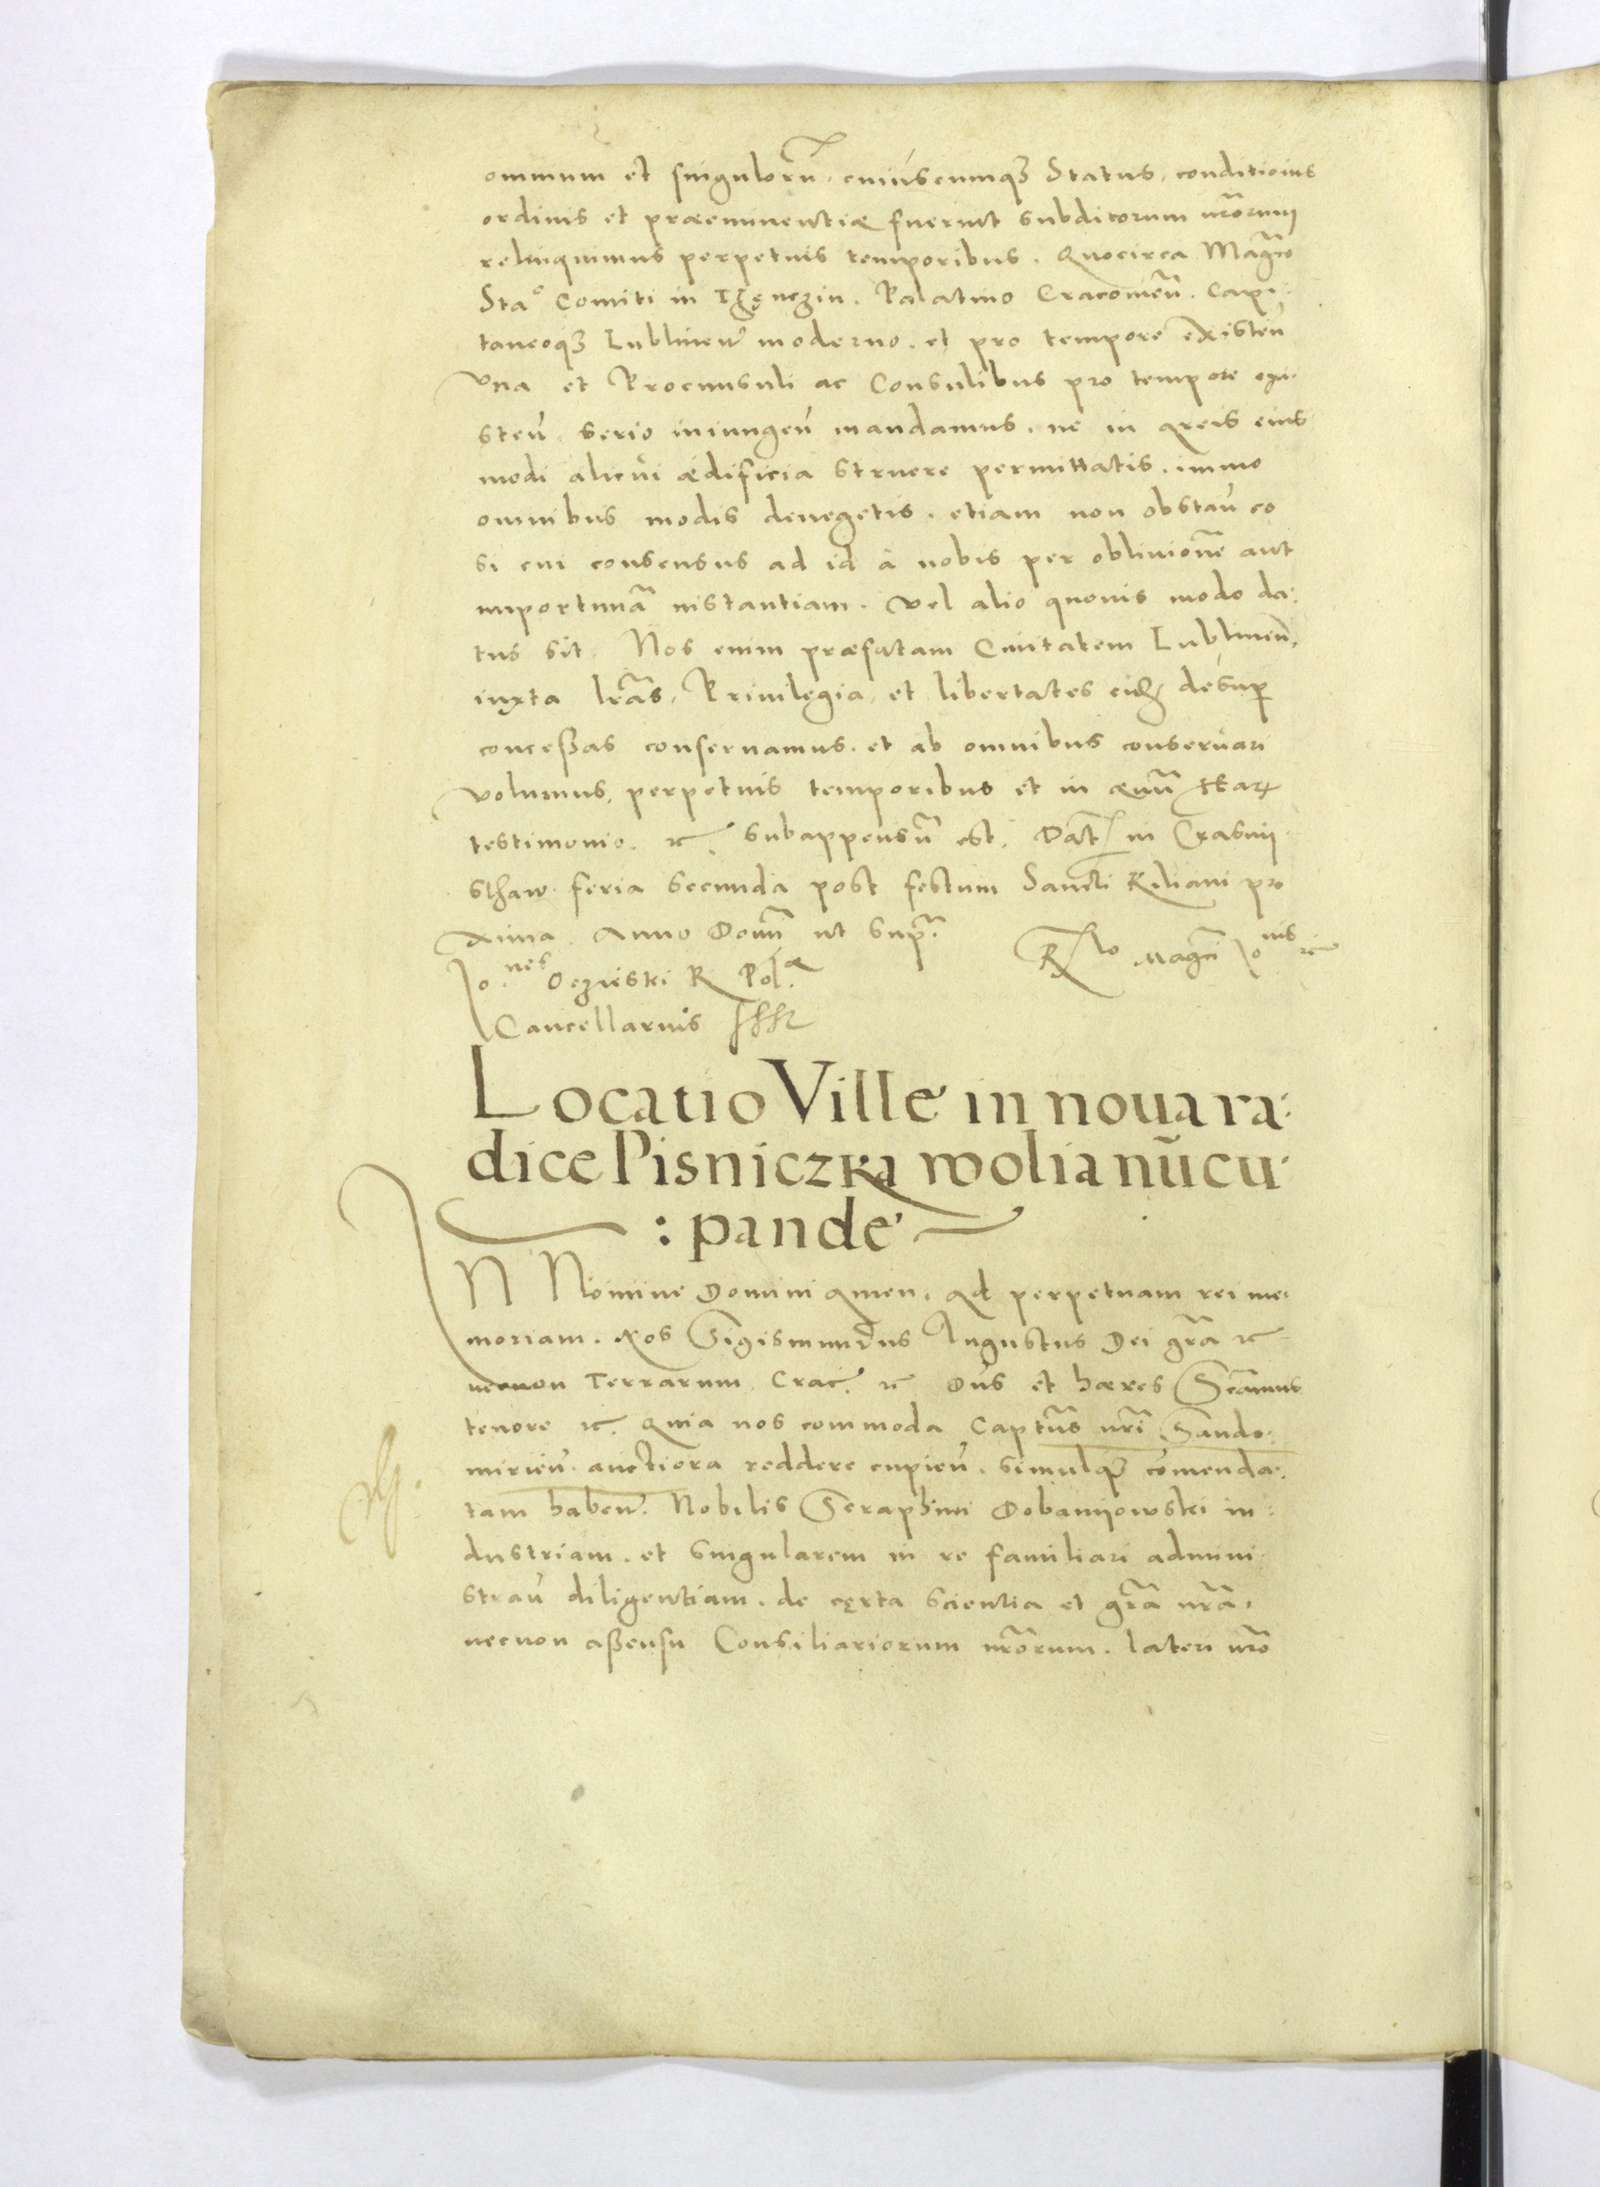 omnium et singulorũ, cuiuscumqʒ Status, conditionis
ordinis et præeminentiæ fuerint subditorum nr̃orum
relinquimus perpetuis temporibus. Quocirca Magco
Sta° Comiti in Thęnczin. Palatino Cracouień. Capi-
taneoqʒ Lublineń moderno. et pro tempore existeń
Vna et Proconsuli ac Consulibus pro tempore exi-
steń. serio iniungeń mandamus. ne in areis eius
modi alicui ædificia struere permittatis. immo
omnibus modis denegetis. etiam non obstań eo
si cui consensus ad id à nobis per obliuionẽ aut
importunã instantiam. vel alio quouis modo da-
tus sit. Nos enim præfatam Ciuitatem Lublineń.
iuxta lr̃as, Priuilegia, et libertates eidẽ desup
concessas conseruamus. et ab omnibus conseruari
volumus, perpetuis temporibus et in æuũ harꝝ
testimonio. ꝛc. subappensũ est. Dat in Crasnij-
sthaw. feria secunda post festum Sancti Kiliani pro
xima. Anno Domĩ ut suprã.
Rlo Magci Jonis
Jo.nes Oczieski R Pol.æ
Cancellarius sssz
Locatio Ville in noua ra-
dice Pisniczka wolia nũcu-
: pande
IN Nomine Domini amen. ad perpetuam rei me-
moriam. Nos Sigismundus Augustus Dei gr̃a ꝛc
necnon Terrarum Crac. ꝛc Dñs et hæres Sćamus
tenore ꝛc. Quia nos commoda Captũs nr̃i Sando-
mirień. auctiora reddere cupień. simulqʒ comenda-
tam habeń. Nobilis Seraphini Dobanijowski in-
dustriam. et singularem in re familiari admini-
strań diligentiam. de cęrta scientia et gr̃a nr̃a.
necnon assensu Consiliariorum nr̃orum. lateri nr̃o